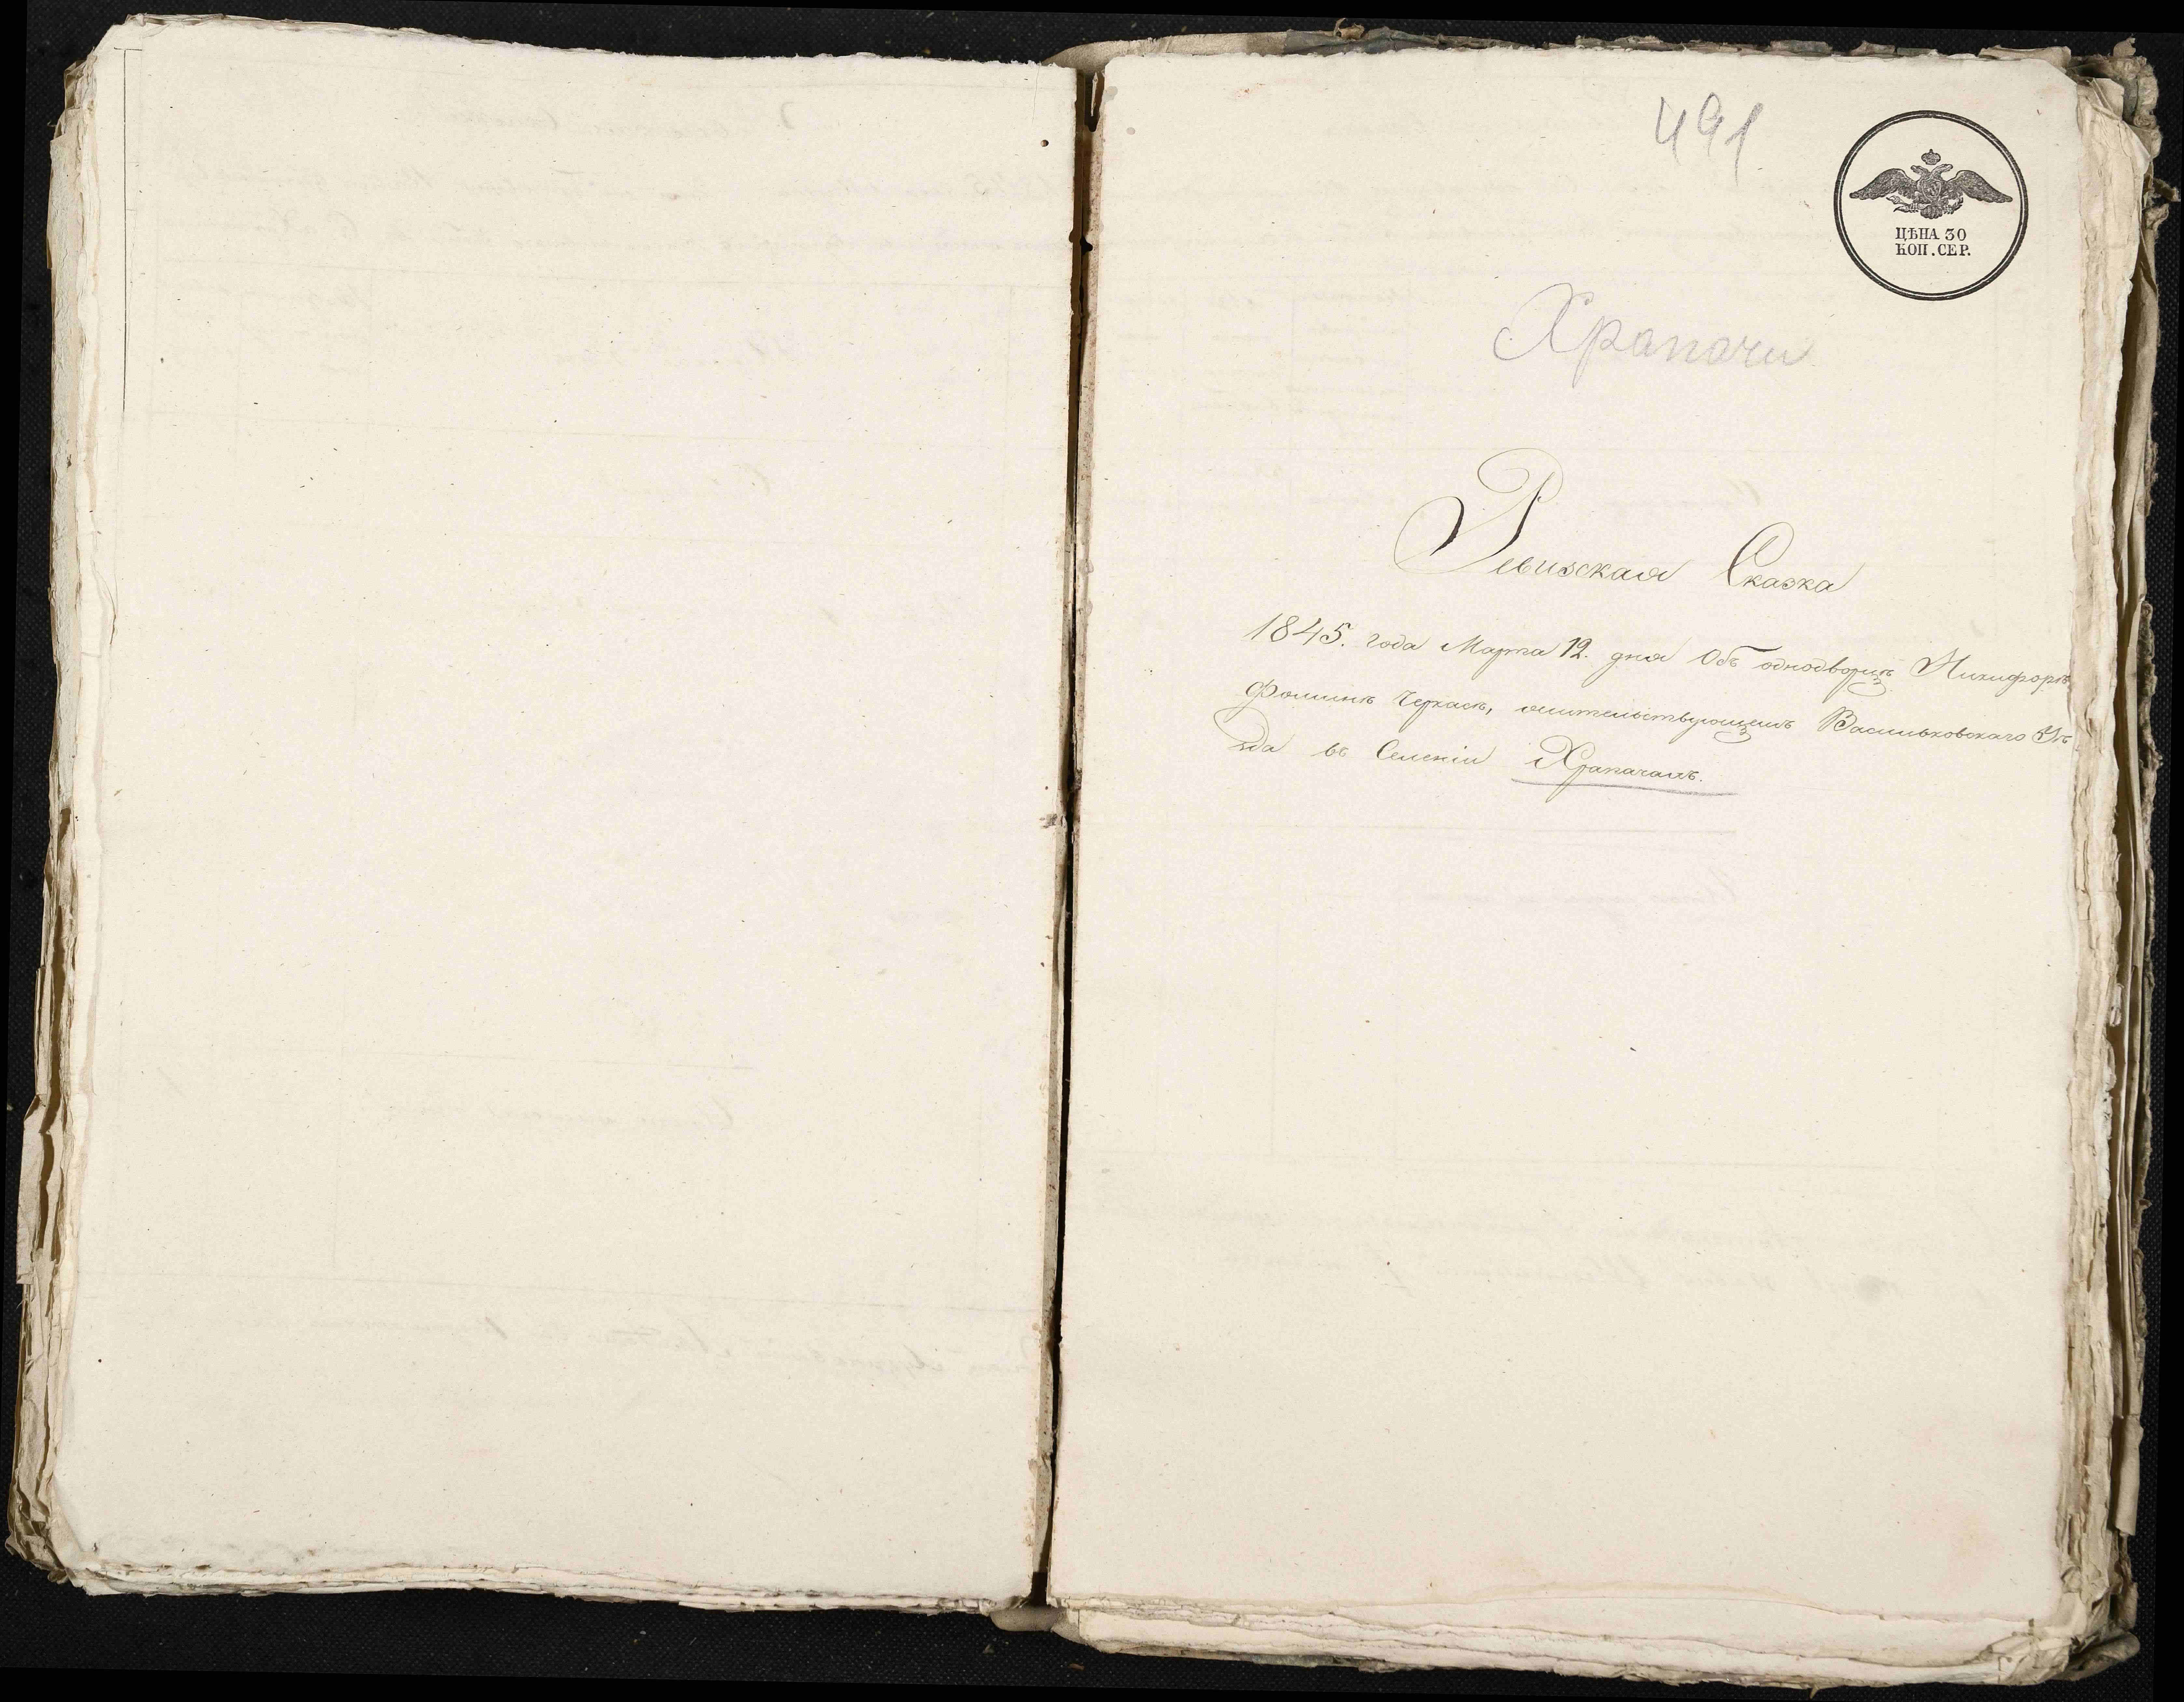 491
ЦѢНА 30
КОП. СЕР.
Храпачи
Ревизская Сказка
1845. года Марта 12. дня Объ однодворцѣ Никифорѣ
Фоминѣ Черкасѣ, жительствующемъ Васильковскаго Уѣ
зда въ Селеніи Храпачахъ.